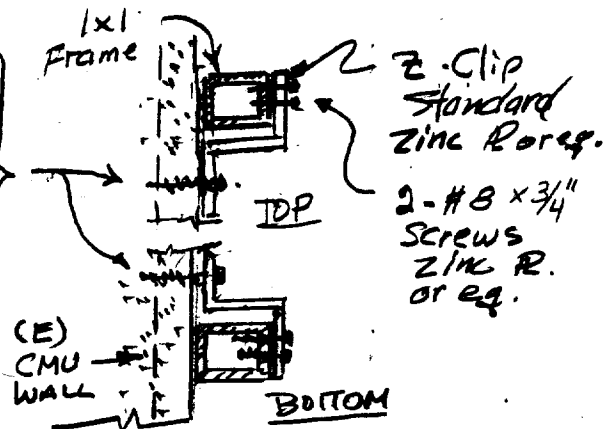 1x1
Frame
Z-Clip
Standard
Zinc PL or eq.
2-#8 x 3/4"
Screws
Zinc PL.
or eq.
TOP
(E)
CMU
WALL
BOTTOM